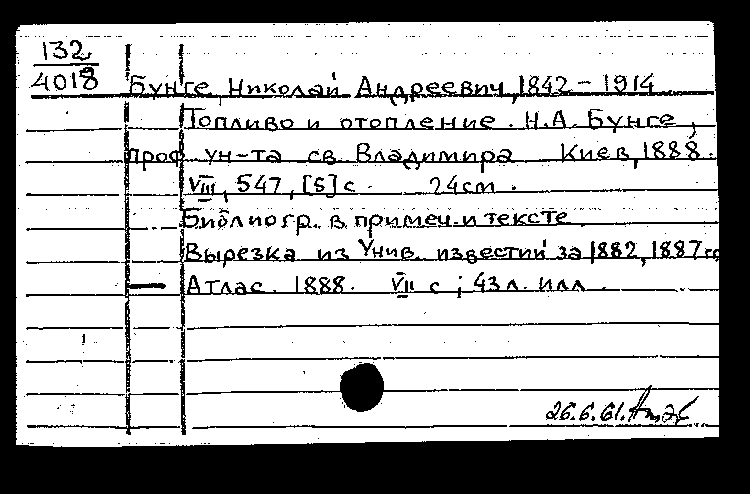 132
4018
Бунге, Николай Андреевич, 1842 – 1914
Топливо и отопление. Н.А. Бунге,
проф ун-та св. Владимира Киев, 1888.
VIII, 547, [5] с. 24см.
Библиогр. в примеч. и тексте
Вырезка из Унив. известий за 1882, 1887
— Атлас. 1888. VII с; 43 л. илл.
26.6.61.